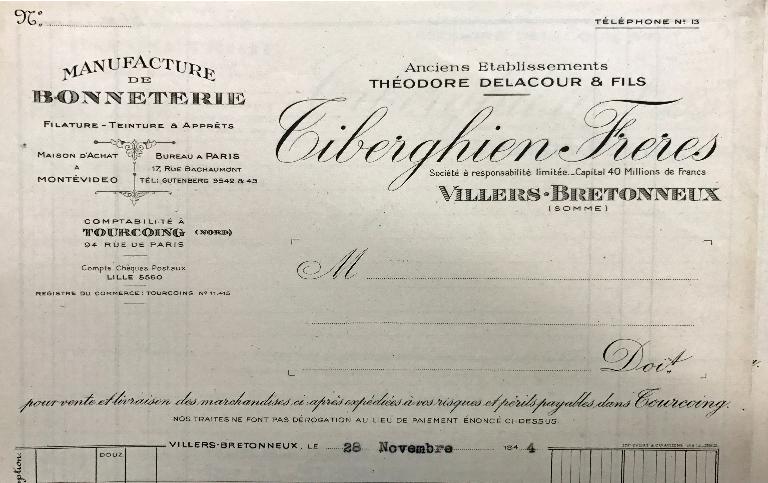 Nº
TÉLÉPHONE Nº 13
MANUFACTURE
DE
BONNETERIE
FILATURE - TEINTURE & APPRÊTS
MAISON D'ACHAT
À
MONTÉVIDEO
BUREAU À PARIS
17, RUE BACHAUMONT
TÉL: GUTENBERG 9542 & 43
COMPTABILITÉ À
TOURCOING (NORD)
94 RUE DE PARIS
Compte Chèques Postaux
LILLE 5560
REGISTRE DU COMMERCE: TOURCOING Nº 11.415
Anciens Etablissements
THÉODORE DELACOUR & FILS
Tiberghien Frères
Société à responsabilité limitée._Capital 40 Millions de Francs
VILLERS-BRETONNEUX
(SOMME)
M
Doit
pour vente et livraison des marchandises ci-après expédiées à vos risques et périls payables dans Tourcoing.
NOS TRAITES NE FONT PAS DÉROGATION AU LIEU DE PAIEMENT ÉNONCÉ CI-DESSUS
VILLERS-BRETONNEUX, LE 28 Novembre 194 4
DOUZ.